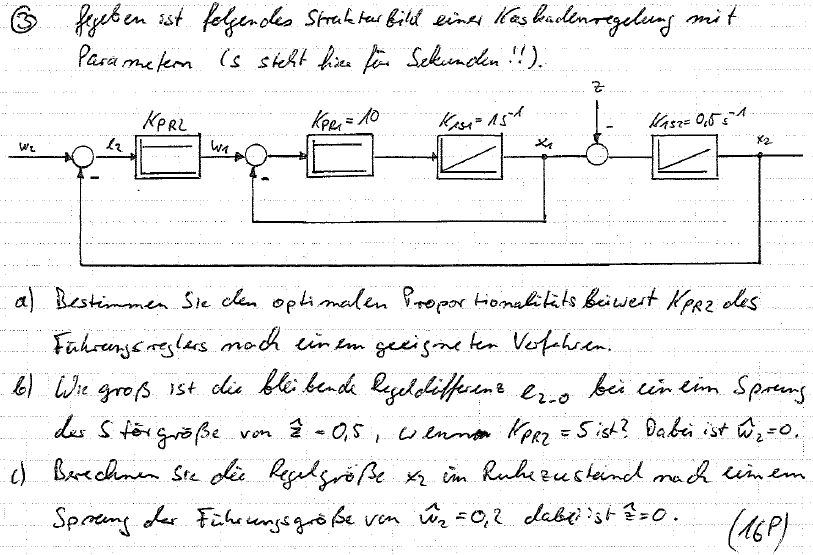 ③ Gegeben ist folgendes Strukturbild einer Kaskadenregelung mit
Parametern (s steht hier für Sekunden!!).
K_PR2 K_PR1 = 10 K_IS1 = 1 s⁻¹ z K_IS2 = 0,5 s⁻¹
w₂ e₂ w₁ x₁ - x₂
- -
a) Bestimmen Sie den optimalen Proportionalitätsbeiwert K_PR2 des
Führungsreglers nach einem geeigneten Verfahren.
b) Wie groß ist die bleibende Regeldifferenz e₂₋₀ bei einem Sprung
der Störgröße von ẑ = 0,5, wenn K_PR2 = 5 ist? Dabei ist ŵ₂ = 0.
c) Berechnen Sie die Regelgröße x₂ im Ruhezustand nach einem
Sprung der Führungsgröße von ŵ₂ = 0,2 dabei ist ẑ = 0.
(16P)